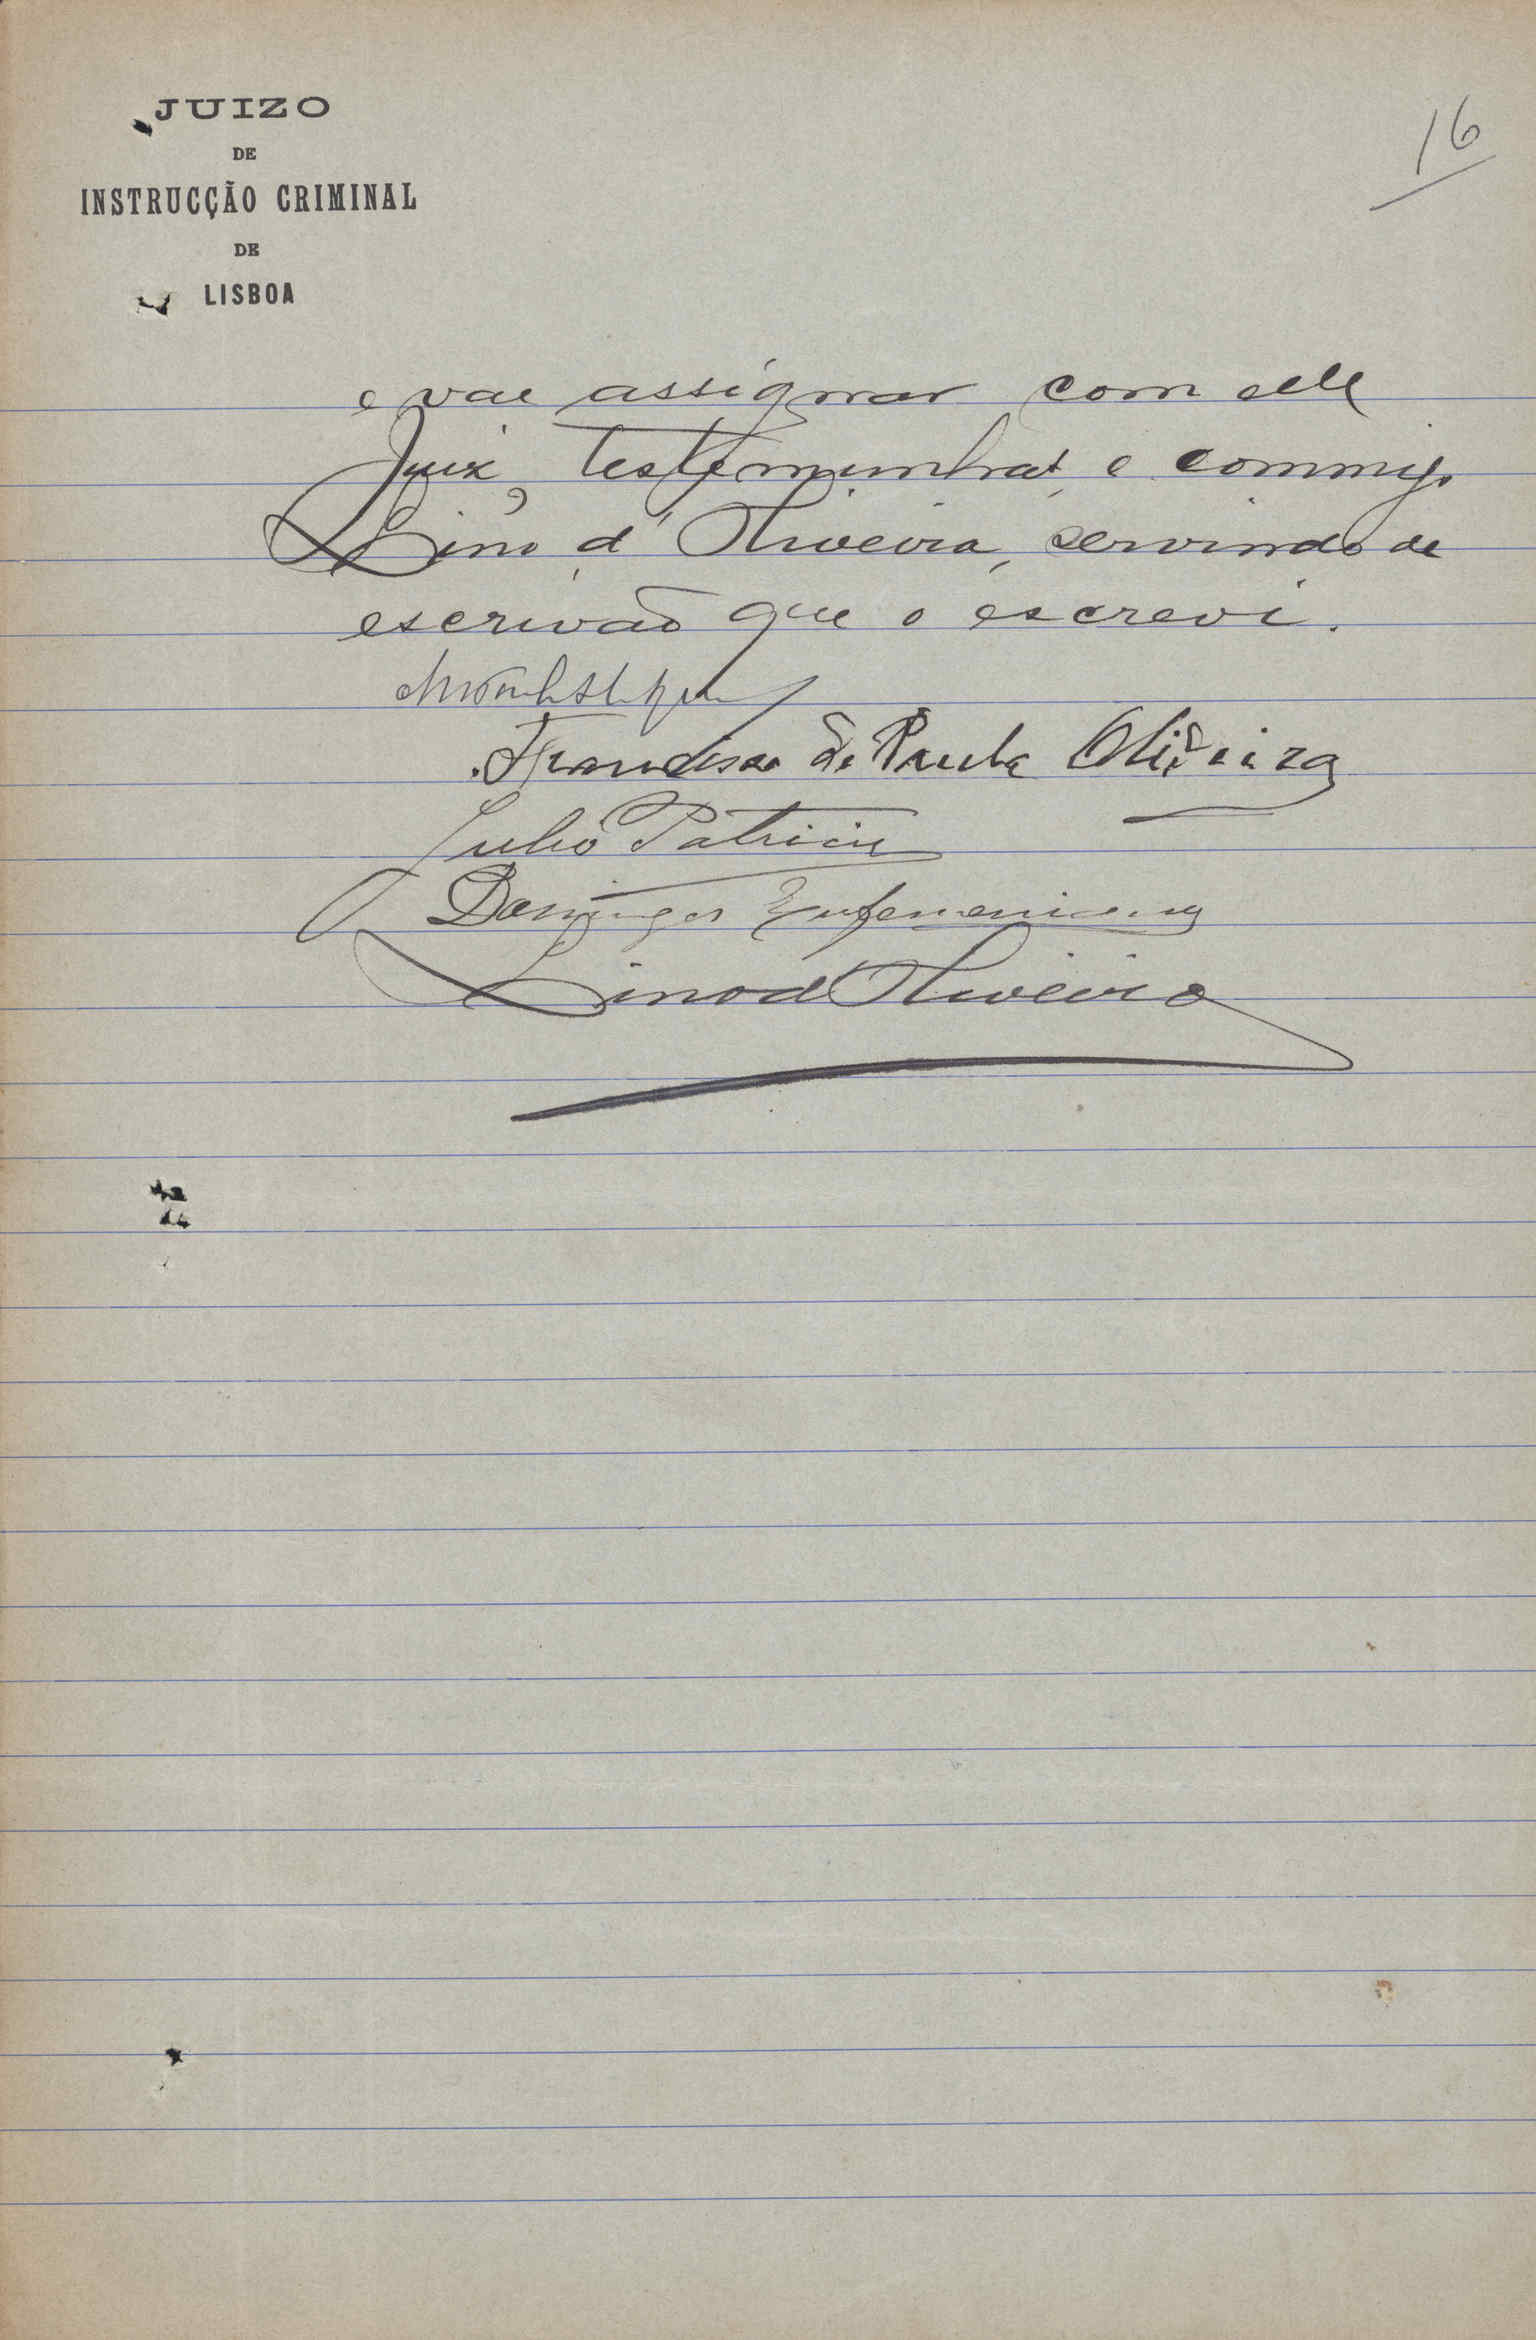 JUIZO
DE
INSTRUCÇÃO CRIMINAL
DE
LISBOA
16
e vae assignar com elle
Juiz, testemunhas e commigo
Lino d'Oliveira, servindo de
escrivão que o escrevi.
Francisco de Paula Oliveira
Julio Patricio
Domingos
Lino d'Oliveira